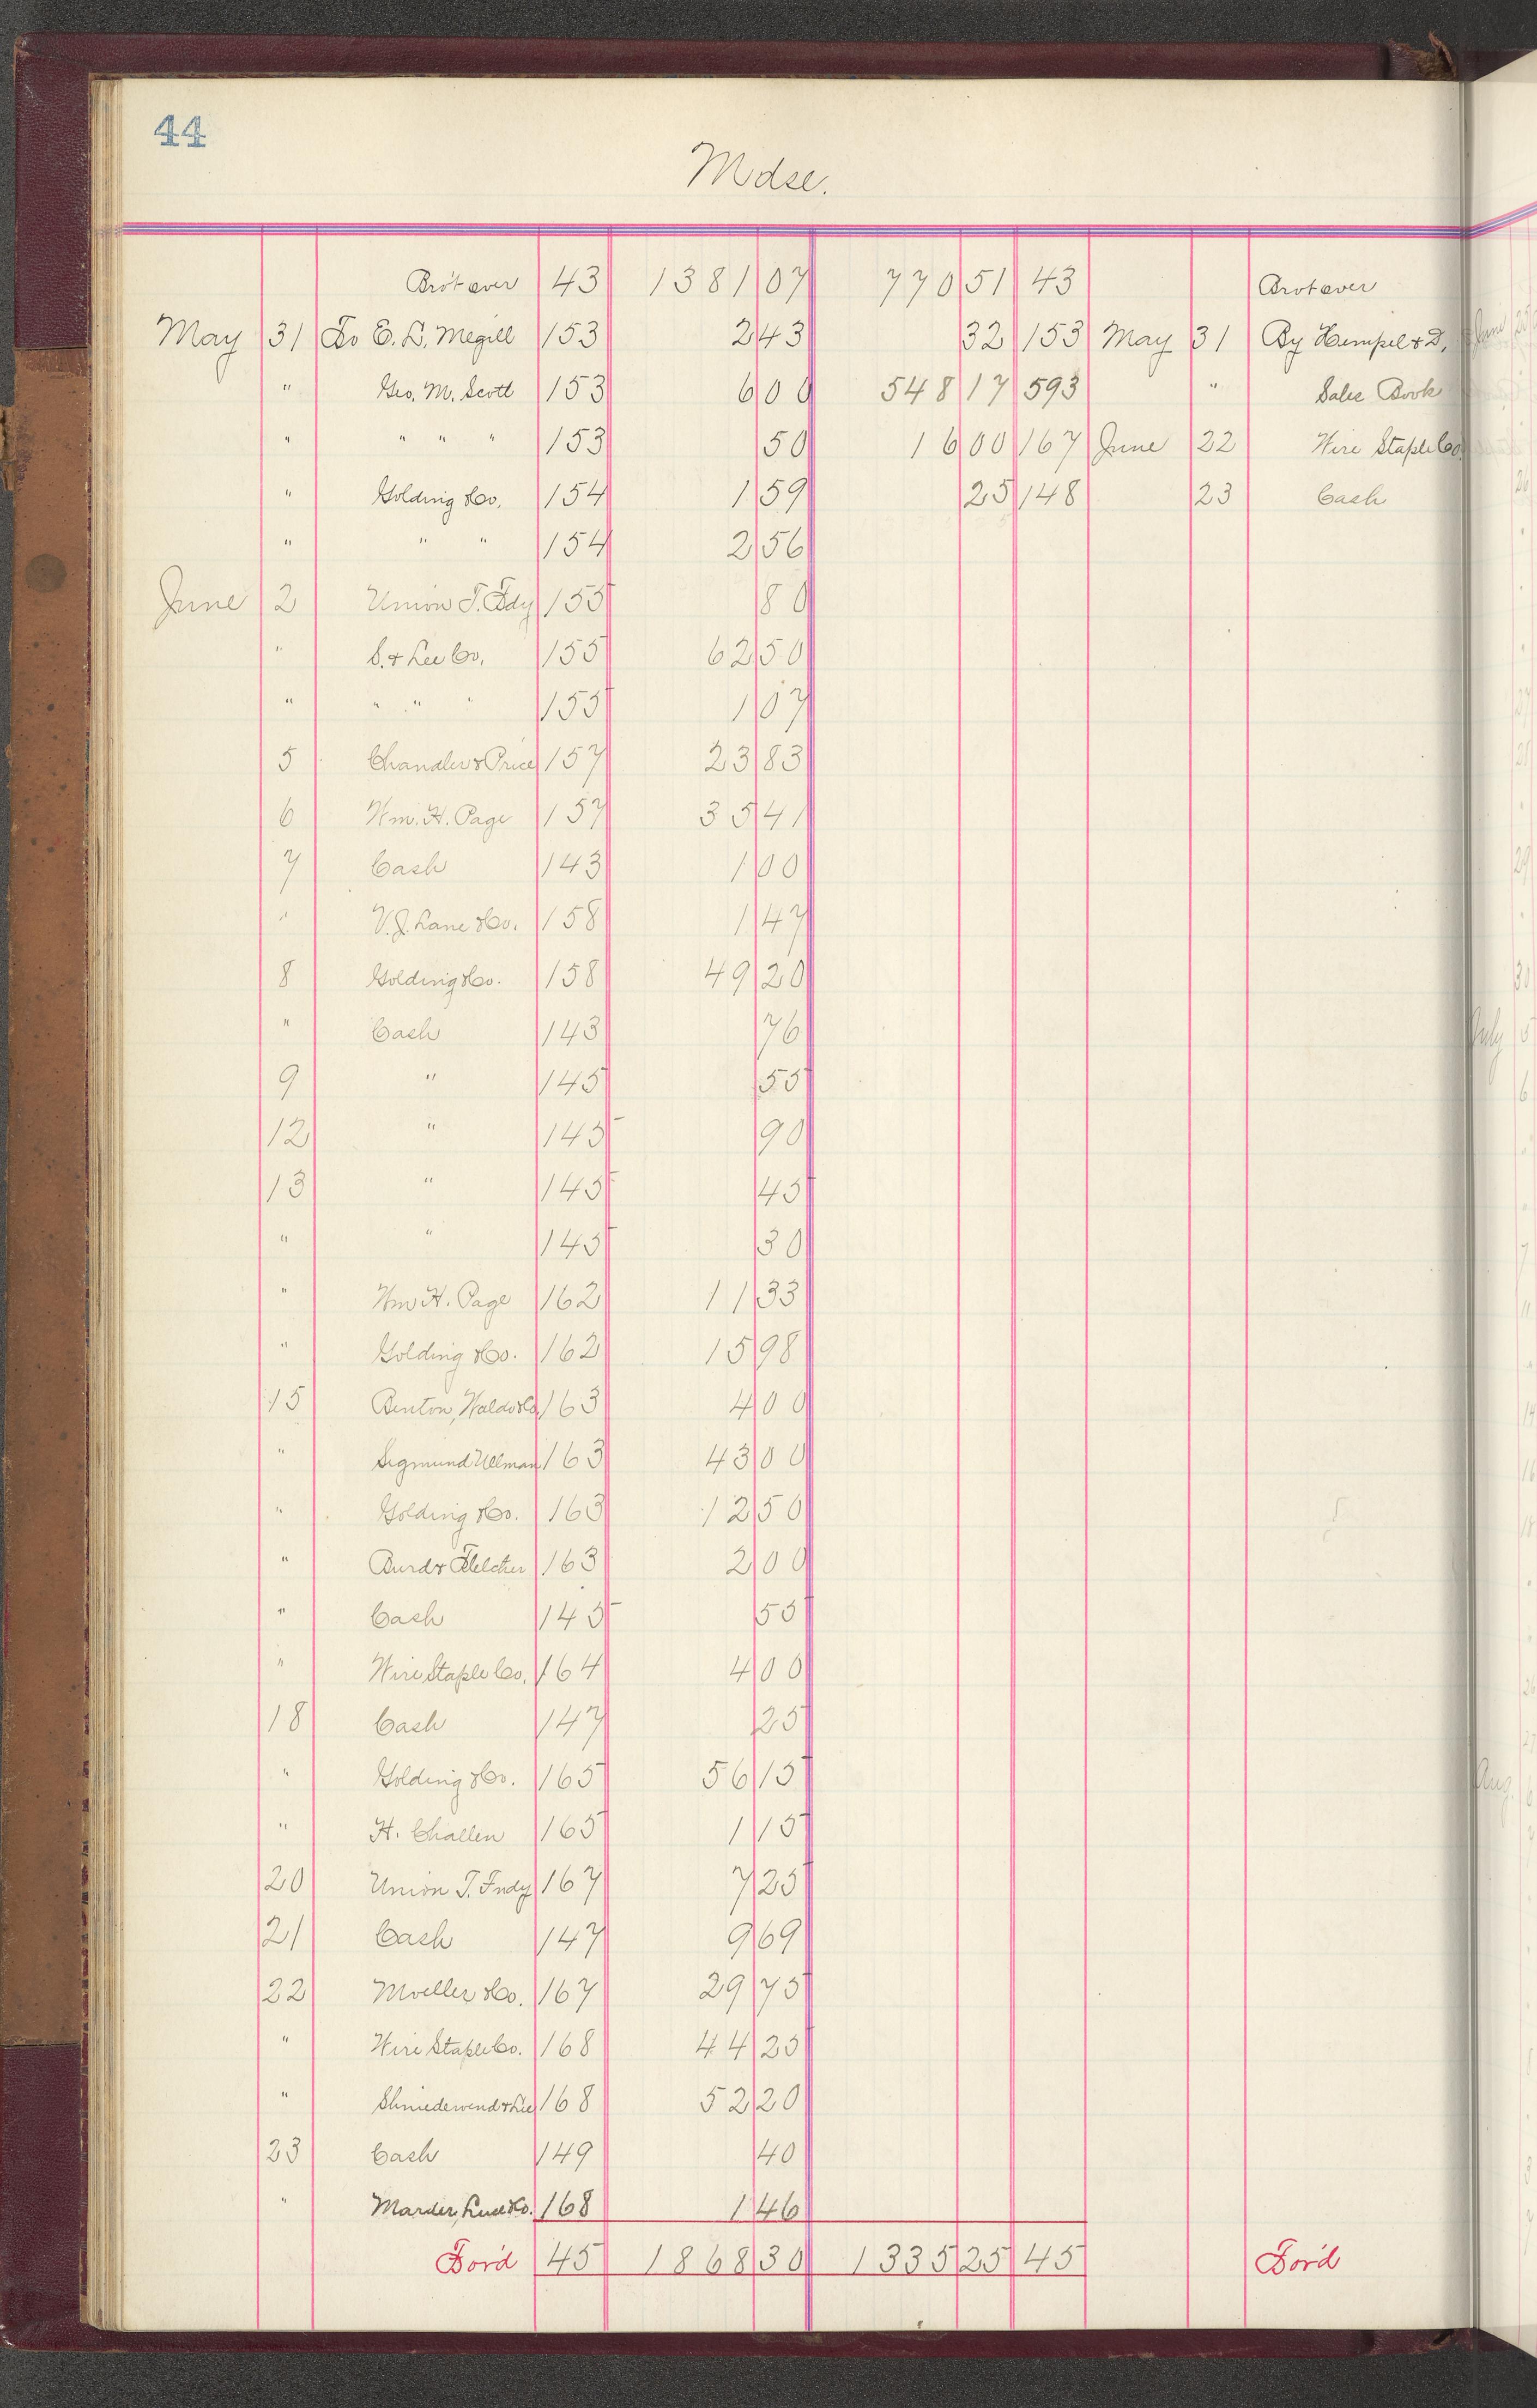 44
Mdse.
Brot over 43 1381 07 770 51 43 Brot over
May 31 To E. L. Megill 153 2 43 32 153 May 31 By Hempel & D,
" Geo. M. Scott 153 6 00 548 17 593 " Sales Book
" " " " 153 50 16 00 167 June 22 Wire Staple Co
" Golding & Co. 154 1 59 25 148 23 Cash
" " " 154 2 56
June 2 Union T. Fdy 155 80
" S. & Lee Co. 155 62 50
" " " " 155 1 07
5 Chandler & Price 157 23 83
6 Wm. H. Page 157 35 41
7 Cash 143 1 00
" V. J. Lane & Co. 158 1 47
8 Golding & Co. 158 49 20
" Cash 143 76
9 " 145 55
12 " 145 90
13 " 145 45
" " 145 30
" Wm H. Page 162 11 33
" Golding & Co. 162 15 98
15 Benton, Waldo & Co 163 4 00
" Sigmund Ullman 163 43 00
" Golding & Co. 163 12 50
" Burd & Fletcher 163 2 00
" Cash 145 55
" Wire Staple Co. 164 4 00
18 Cash 147 25
" Golding & Co. 165 56 15
" H. Challen 165 1 15
20 Union T. Fndy 167 7 25
21 Cash 147 9 69
22 Moeller & Co. 167 29 75
" Wire Staple Co. 168 44 25
" Shniedewend & Lee 168 52 20
23 Cash 149 40
" Marder, Luse & Co. 168 1 46
For'd 45 1868 30 1335 25 45 For'd